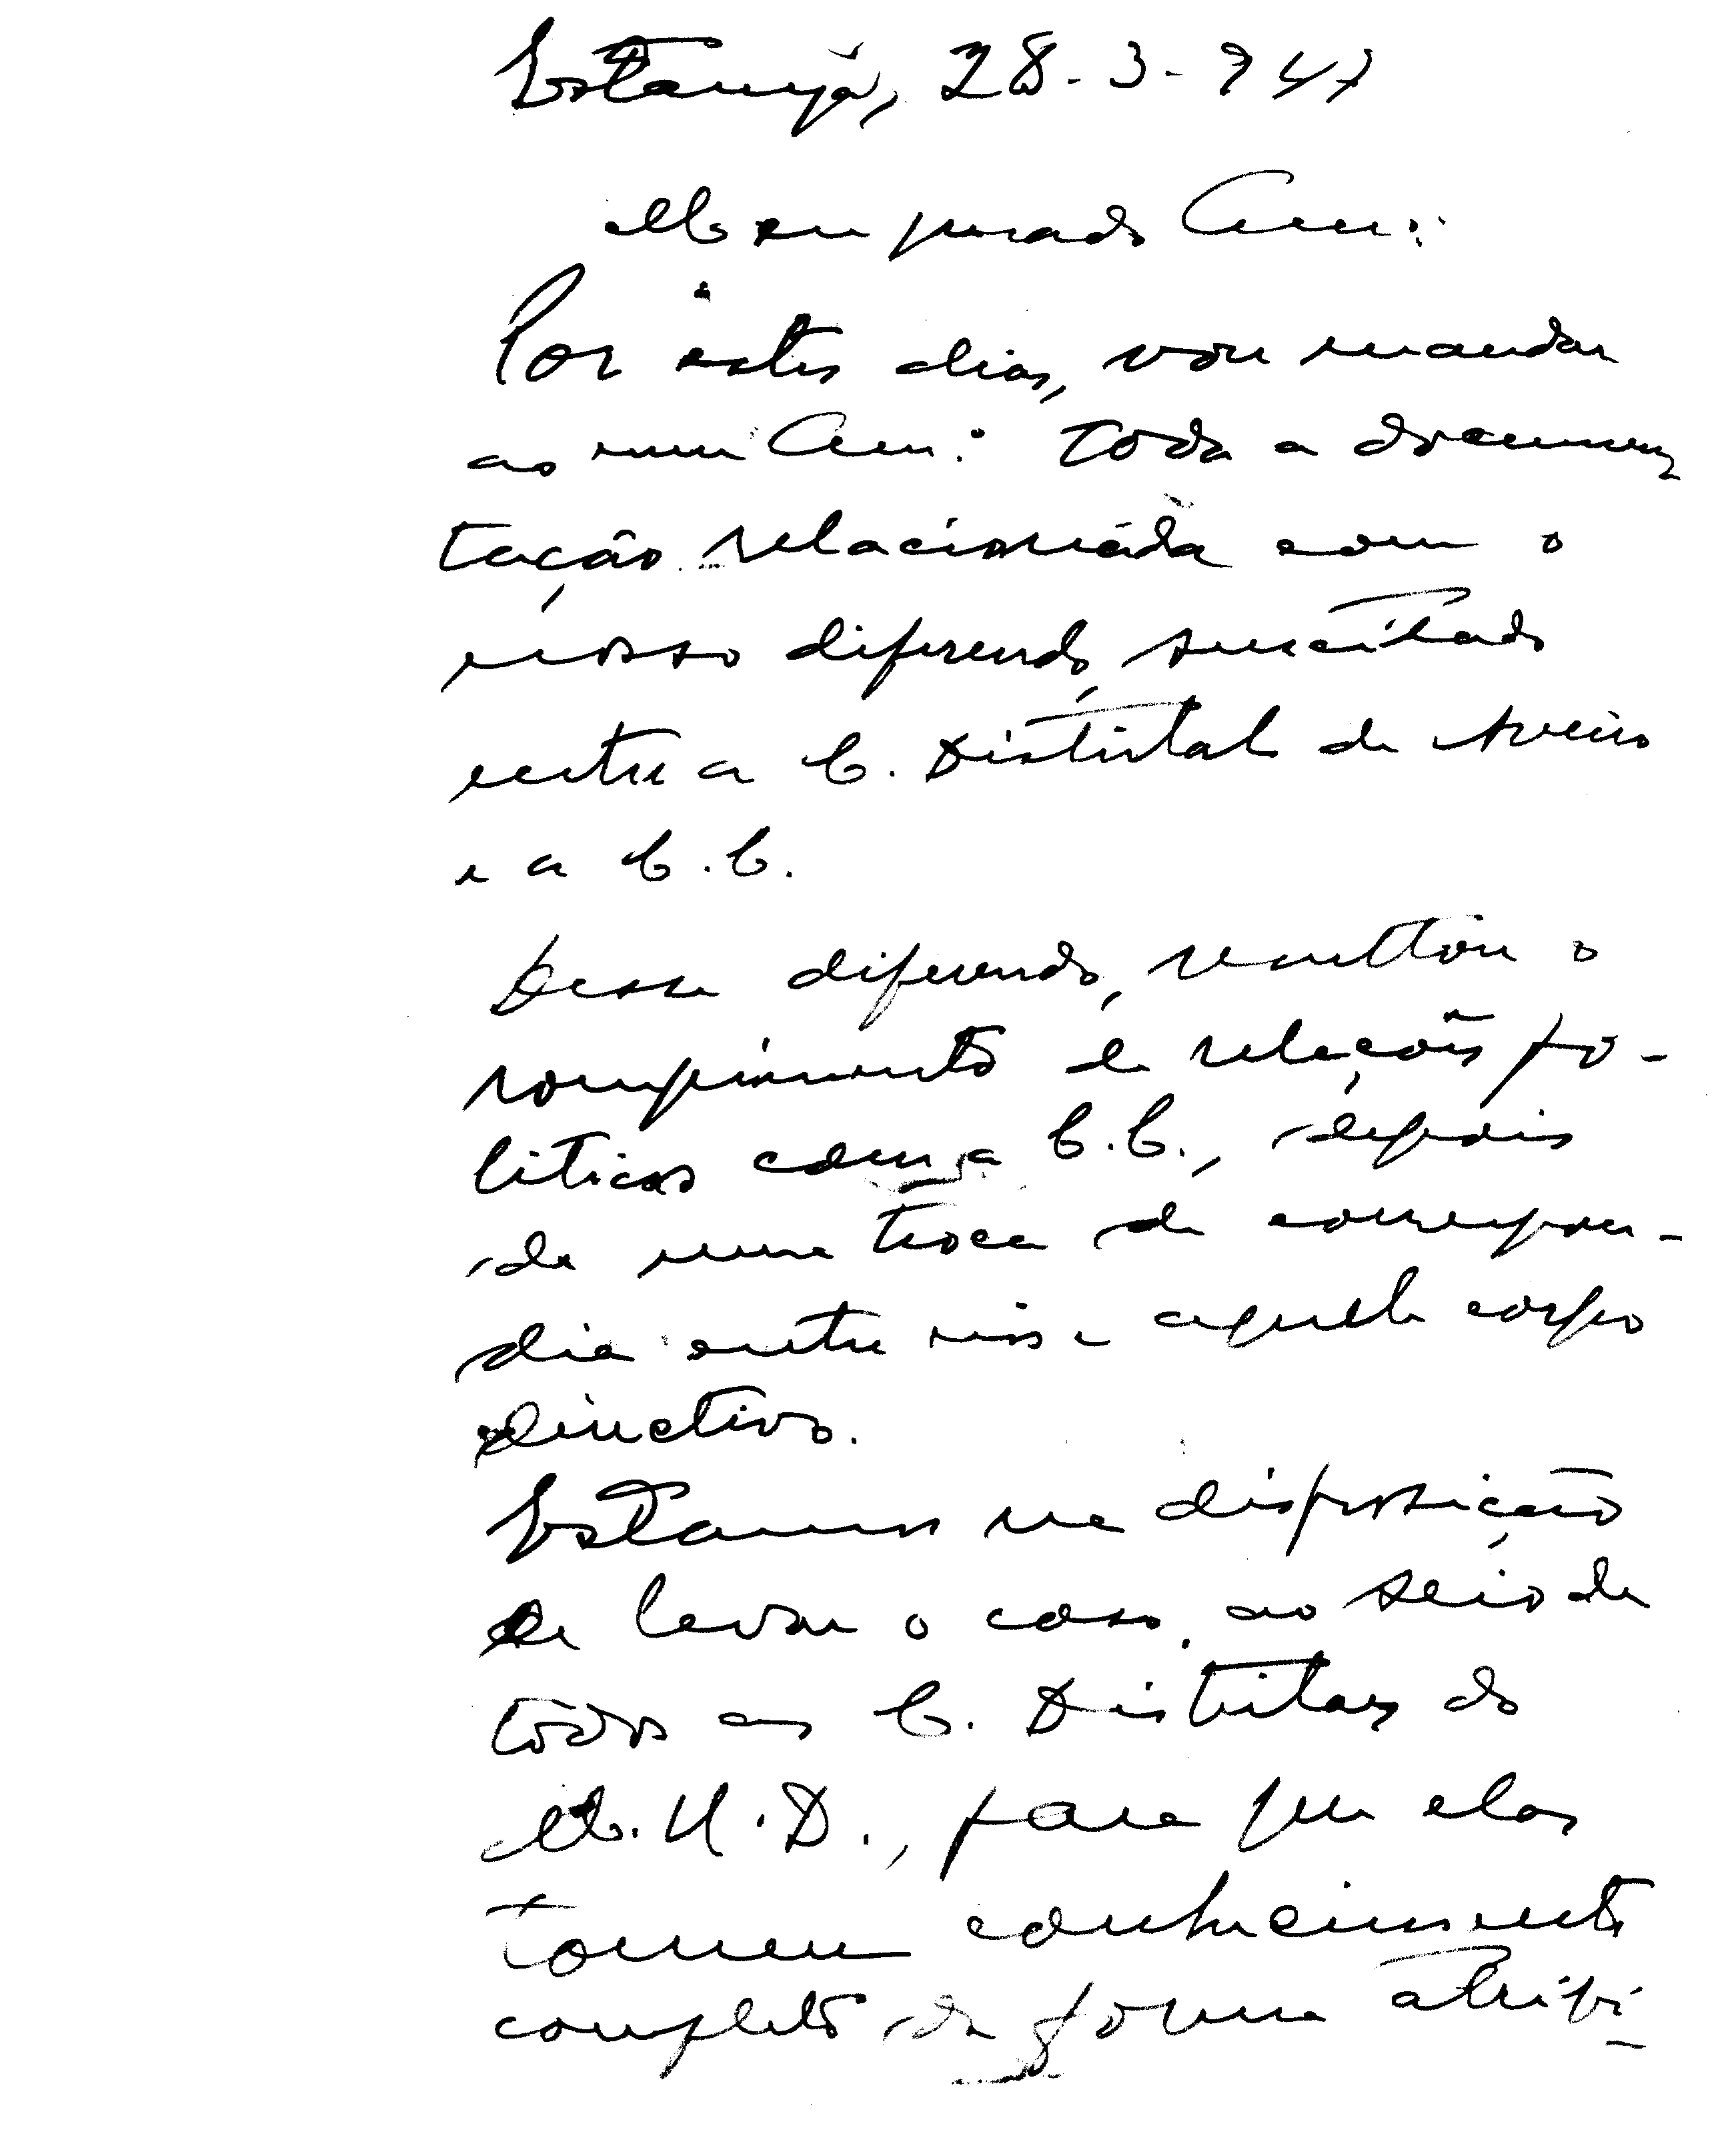 Estarreja, 28-3-947
Meu presado Am.º:
Por estes dias, vou mandar
ao meu Am.º toda a documen
tação relacionada com o
nosso diferendo, suscitado
entre a C. Distrital de Aveiro
e a C.C.
Desse diferendo, resultou o
rompimento de relações po-
liticas com a C.C., depois
de uma troca de correspon-
dia entre nós e aquele corpo
directivo.
Estamos na disposição
de levar o caso, ao seio de
todas as C. Distritaes do
M.U.D., para que elas
tomem conhecimento
completo da forma